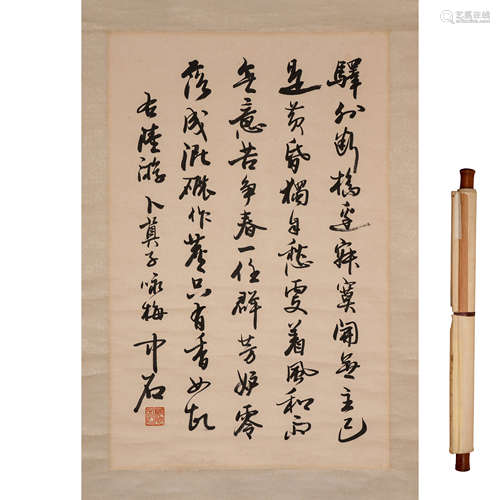 驛外斷橋邊寂寞開無主已
是黃昏獨自愁更着風和雨
無意苦爭春一任群芳妒零
落成泥碾作塵只有香如故
右陸游卜算子咏梅 中石